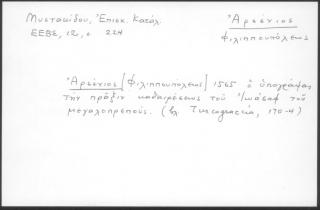 Μυστακίδου, Ἐπισκ. Κατάλ.
ΕΕΒΣ, 12, σ 224
Ἀρσένιος
Φιλιππουπόλεως
Ἀρσένιος [Φιλιππουπόλεως] 1565 ὁ ὑπογράψας
τὴν πρᾶξιν καθαιρέσεως τοῦ Ἰωάσαφ τοῦ
μεγαλοπρεποῦς. (βλ. Turcograecia, 170-4)